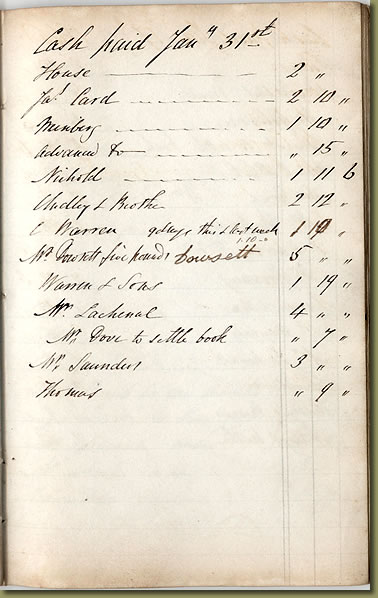 Cash paid Jany 31st
House 2 "
Jas Card 2 10 "
1 10 "
Advanced to " 15 "
Nichold 1 11 6
& Brother 2 12 "
C Warren this & last week 1 10 "
1-10-0
Mr Dowsett five pounds Dowsett 5 " "
Warren & Sons 1 19 "
Mr Lachenal 4 " "
Mr Dove to settle book " 7 "
Mr Saunders 3 " "
Thomas " 9 "